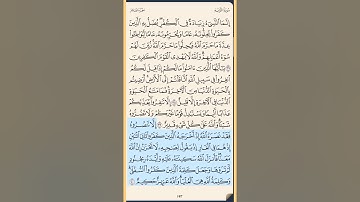 إِنَّمَا ٱلنَّسِىٓءُ زِيَادَةٌ فِى ٱلْكُفْرِ يُضَلُّ بِهِ ٱلَّذِينَ
كَفَرُوا۟ يُحِلُّونَهُۥ عَامًا وَيُحَرِّمُونَهُۥ عَامًا لِّيُوَاطِـُٔوا۟
عِدَّةَ مَا حَرَّمَ ٱللَّهُ فَيُحِلُّوا۟ مَا حَرَّمَ ٱللَّهُ زُيِّنَ لَهُمْ
سُوٓءُ أَعْمَـٰلِهِمْ وَٱللَّهُ لَا يَهْدِى ٱلْقَوْمَ ٱلْكَـٰفِرِينَ
يَـٰٓأَيُّهَا ٱلَّذِينَ ءَامَنُوا۟ مَا لَكُمْ إِذَا قِيلَ لَكُمُ
ٱنفِرُوا۟ فِى سَبِيلِ ٱللَّهِ ٱثَّاقَلْتُمْ إِلَى ٱلْأَرْضِ أَرَضِيتُم
بِٱلْحَيَوٰةِ ٱلدُّنْيَا مِنَ ٱلْـَٔاخِرَةِ فَمَا مَتَـٰعُ ٱلْحَيَوٰةِ
ٱلدُّنْيَا فِى ٱلْـَٔاخِرَةِ إِلَّا قَلِيلٌ إِلَّا تَنفِرُوا۟ يُعَذِّبْكُمْ
عَذَابًا أَلِيمًا وَيَسْتَبْدِلْ قَوْمًا غَيْرَكُمْ وَلَا تَضُرُّوهُ
شَيْـًٔا وَٱللَّهُ عَلَىٰ كُلِّ شَىْءٍ قَدِيرٌ إِلَّا تَنصُرُوهُ
فَقَدْ نَصَرَهُ ٱللَّهُ إِذْ أَخْرَجَهُ ٱلَّذِينَ كَفَرُوا۟ ثَانِىَ ٱثْنَيْنِ
إِذْ هُمَا فِى ٱلْغَارِ إِذْ يَقُولُ لِصَـٰحِبِهِۦ لَا تَحْزَنْ إِنَّ ٱللَّهَ
مَعَنَا فَأَنزَلَ ٱللَّهُ سَكِينَتَهُۥ عَلَيْهِ وَأَيَّدَهُۥ بِجُنُودٍ
لَّمْ تَرَوْهَا وَجَعَلَ كَلِمَةَ ٱلَّذِينَ كَفَرُوا۟ ٱلسُّفْلَىٰ
وَكَلِمَةُ ٱللَّهِ هِىَ ٱلْعُلْيَا وَٱللَّهُ عَزِيزٌ حَكِيمٌ
١٩٣